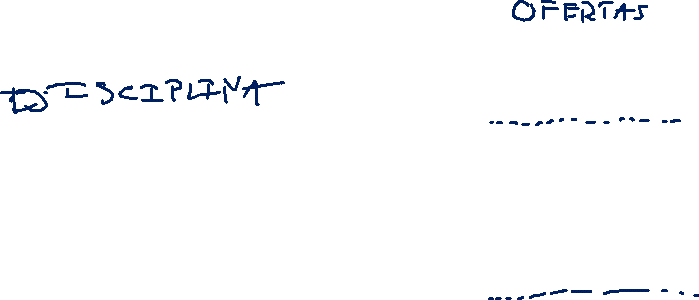 OFERTAS
DISCIPLINA